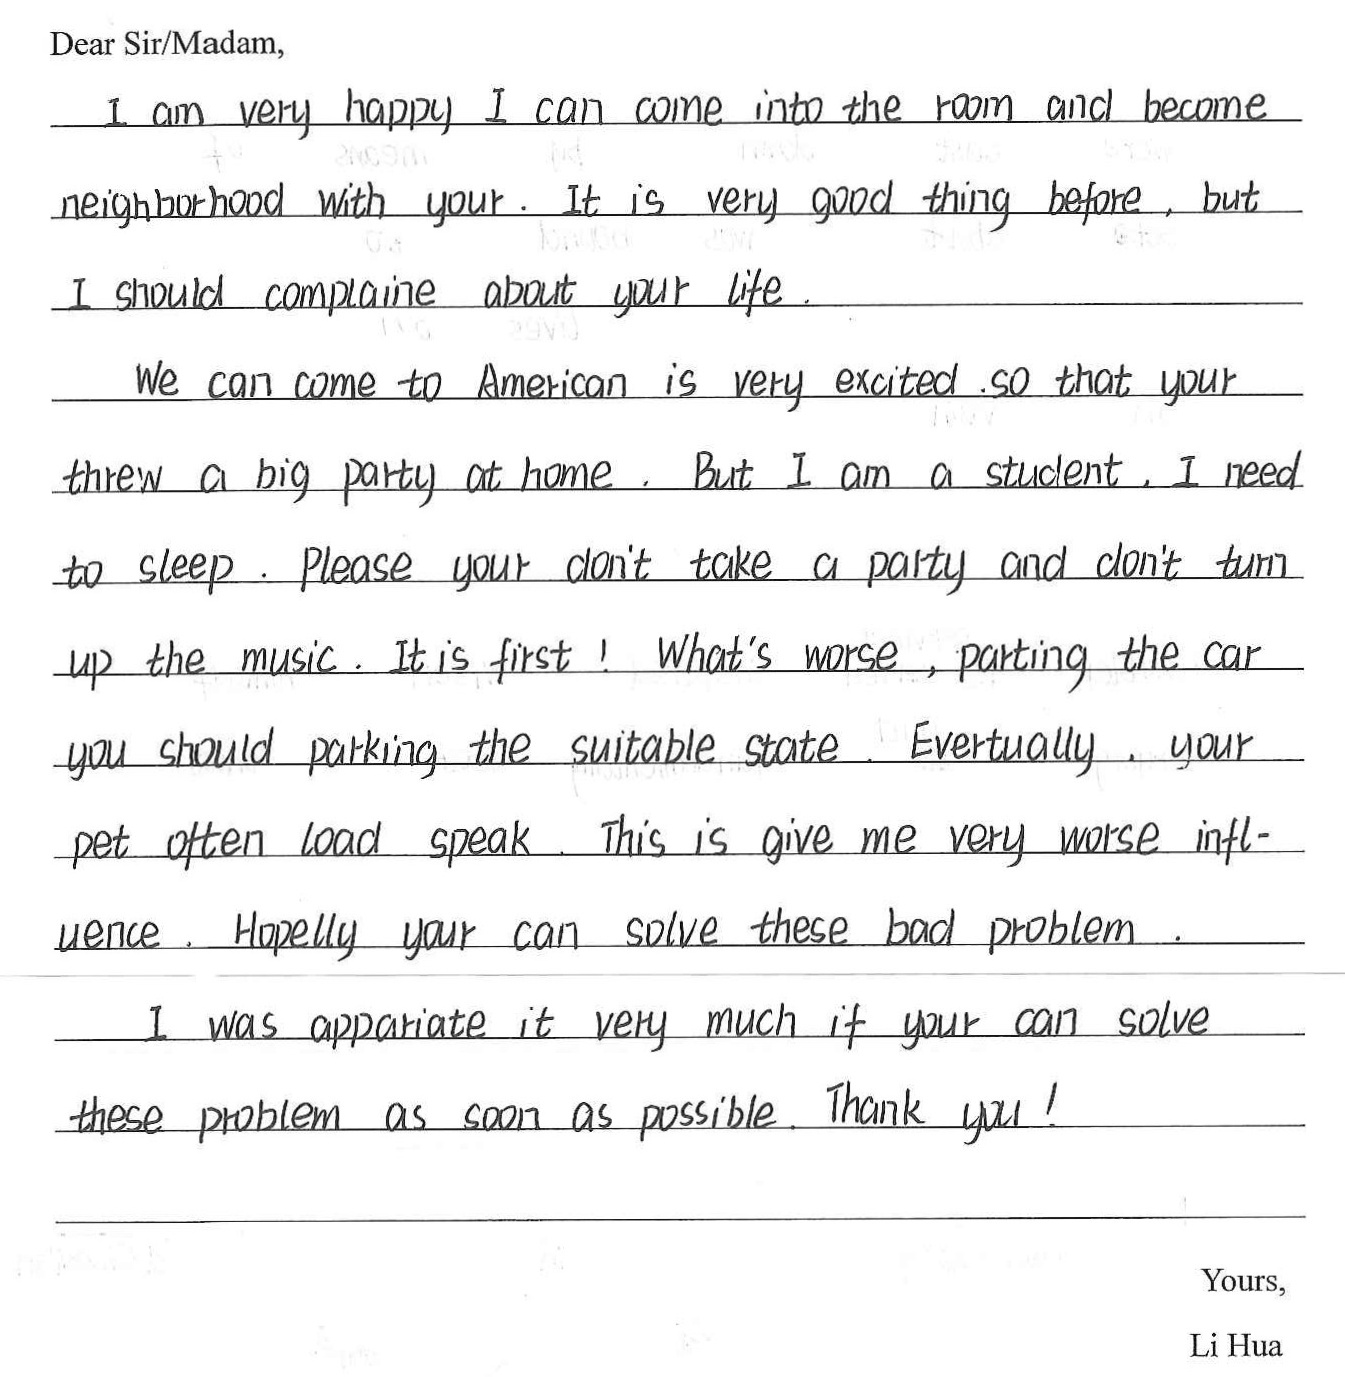 Dear Sir/Madam,
I am very happy I can come into the room and become
neighborhood with your. It is very good thing before, but
I should complaine about your life.
We can come to American is very excited .so that your
threw a big party at home. But I am a student, I need
to sleep. Please your don't take a party and don't turn
up the music. It is first! What's worse, parting the car
you should parking the suitable state. Evertually, your
pet often load speak. This is give me very worse infl-
uence. Hopelly your can solve these bad problem.
I was appariate it very much if your can solve
these problem as soon as possible. Thank you!
Yours,
Li Hua